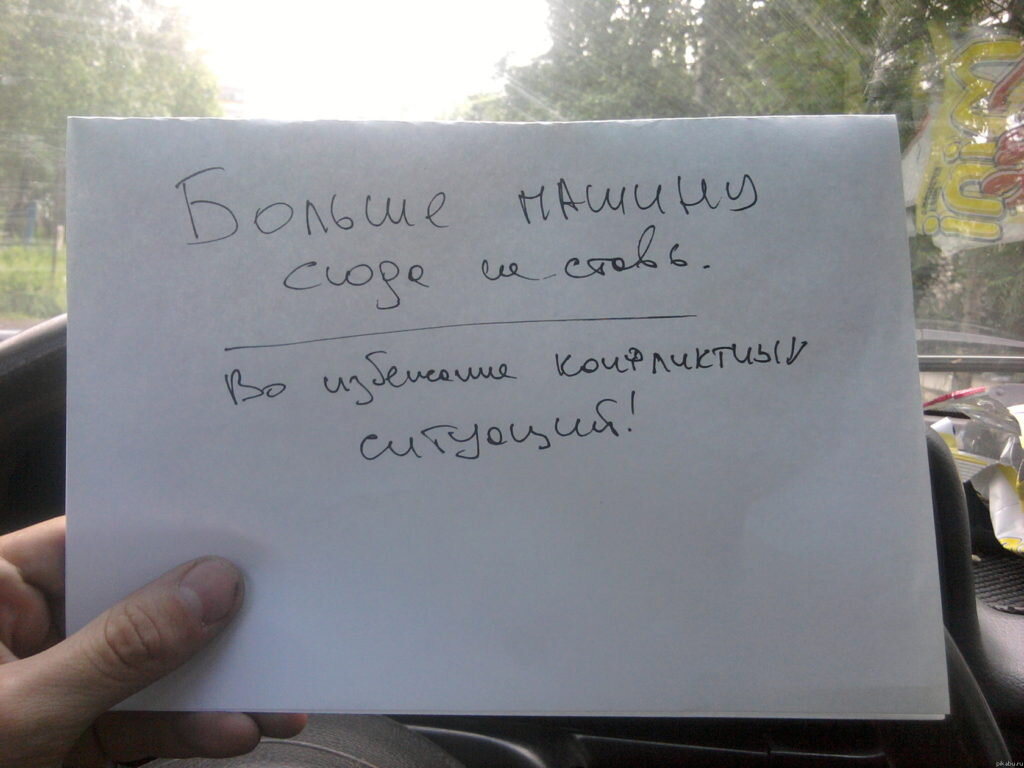 Больше машину
сюда не ставь.
Во избежание конфликтных
ситуаций!
mini
pikabu.ru